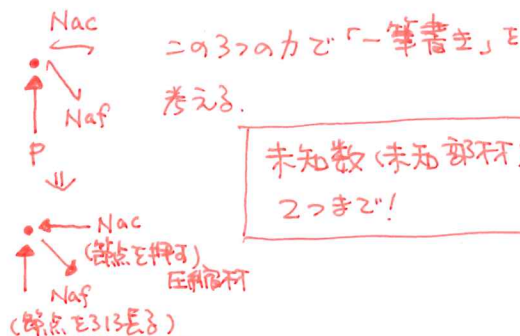 Nac
この3つの力で「一筆書き」を
考える.
Naf
P
未知数(未知部材)
2つまで!
Nac
(節点を押す)
圧縮材
Naf
(節点を引張る)